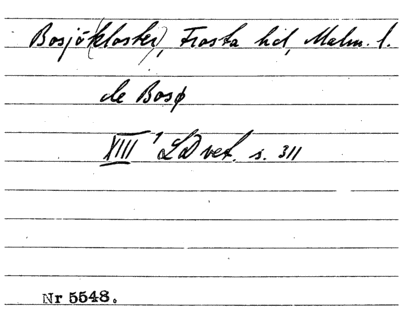 Bosjö(kloster), Frosta hd, Malm. l.
de Bosø
XIII ¹ LD vet. s. 311
Nr 5548.